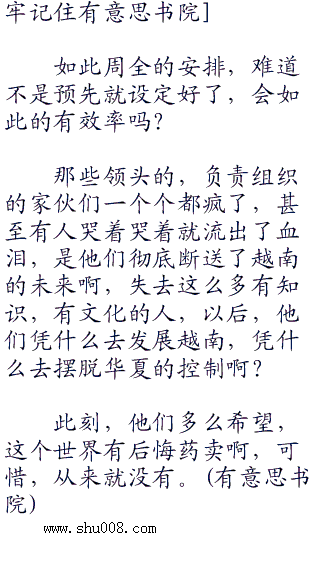 牢记住有意思书院]
如此周全的安排，难道
不是预先就设定好了，会如
此的有效率吗？
那些领头的，负责组织
的家伙们一个个都疯了，甚
至有人哭着哭着就流出了血
泪，是他们彻底断送了越南
的未来啊，失去这么多有知
识，有文化的人，以后，他
们凭什么去发展越南，凭什
么去摆脱华夏的控制啊？
此刻，他们多么希望，
这个世界有后悔药卖啊，可
惜，从来就没有。(有意思书
院)
www.shu008.com